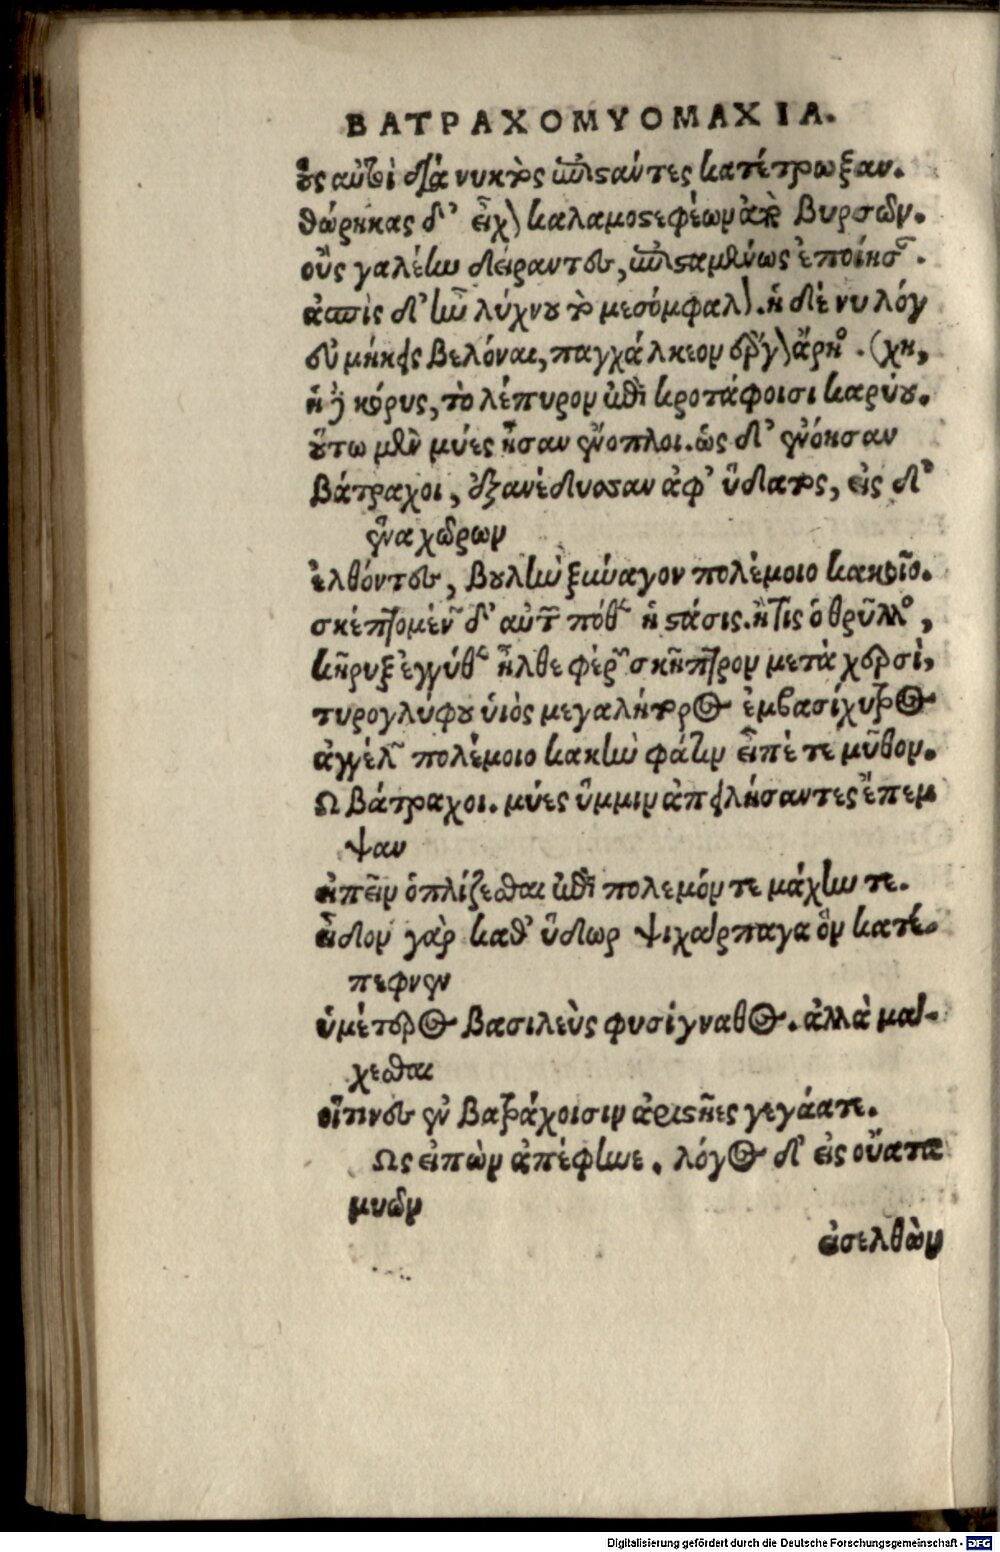 ΒΑΤΡΑΧΟΜΥΟΜΑΧΙΑ.
οὓς αὐτοὶ διὰ νυκτὸς ἐπιστάντες κατέτρωξαν.
θώρηκας δ' εἶχον καλαμοστεφέων ἀπὸ βυρσῶν.
οὓς γαλέην δείραντες, ἐπισταμένως ἐποίησαν.
ἀσπὶς δ' ἦν λύχνου τὸ μεσόμφαλον. ἡ δέ νυ λόγ
εὐμήκεις βελόναι, παγχάλκεον ἔργον ἄρηος. (χη,
ἡ δὲ κόρυς, τὸ λέπυρον ἐπὶ κροτάφοισι καρύου.
οὕτω μὲν μύες ἦσαν ἔνοπλοι. ὡς δ' ἐνόησαν
βάτραχοι, ἐξανέδυσαν ἀφ' ὕδατος, εἰς δ'
ἕνα χῶρον
ἐλθόντες, βουλὴν ξύναγον πολέμοιο κακοῖο.
σκεπτομένων δ' αὐτῶν πόθεν ἡ στάσις. ἢ τίς ὁ θρῦλλος,
κῆρυξ ἐγγύθεν ἦλθε φέρων σκῆπτρον μετὰ χερσὶ,
τυρογλύφου υἱὸς μεγαλήτορος ἐμβασίχυτρος
ἀγγέλων πολέμοιο κακὴν φάτιν εἶπέ τε μῦθον.
Ω βάτραχοι. μύες ὔμμιν ἀπειλήσαντες ἔπεμ
ψαν
εἰπεῖν ὁπλίζεσθαι ἐπὶ πολεμόν τε μάχην τε.
εἶδον γὰρ καθ' ὕδωρ ψιχάρπαγα ὃν κατέ-
πεφνεν
ὑμέτερος βασιλεὺς φυσίγναθος. ἀλλὰ μά-
χεσθαι
οἵτινες ἐν βατράχοισιν ἀριστῆες γεγάατε.
Ως εἰπὼν ἀπέφηνε. λόγος δ' εἰς οὔατα
μυῶν
εἰσελθὼν
Digitalisierung gefördert durch die Deutsche Forschungsgemeinschaft - DFG